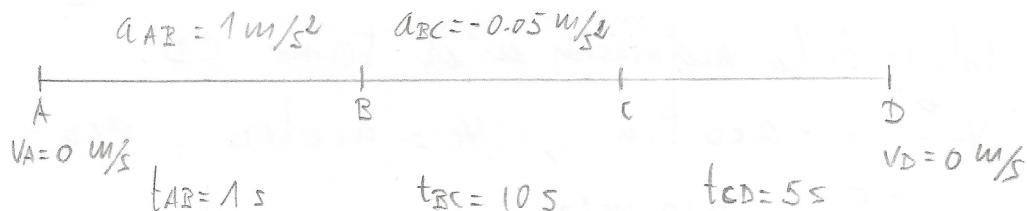 aAB = 1 m/s² aBC = -0.05 m/s²
A B C D
VA = 0 m/s VD = 0 m/s
tAB = 1 s tBC = 10 s tCD = 5 s